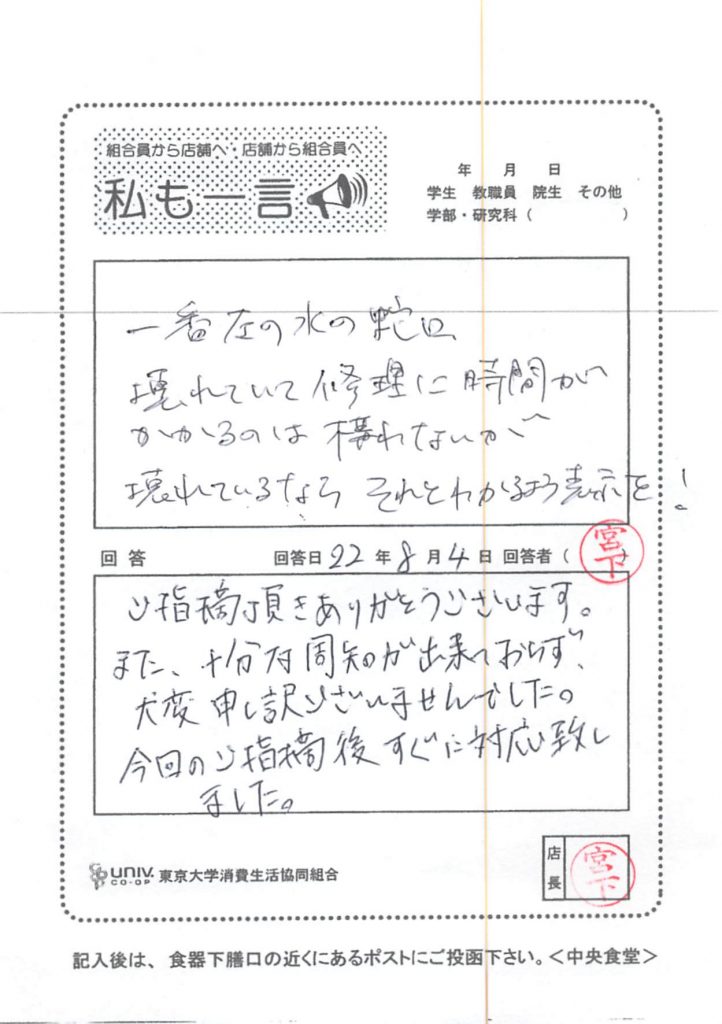 組合員から店舗へ・店舗から組合員へ
私も一言
年 月 日
学生 教職員 院生 その他
学部・研究科（ ）
一番左の水の蛇口
壊れていて修理に時間が
かかるのは構わないが
壊れているなら それとわかるよう表示を!
回答 回答日 22 年 8 月 4 日 回答者（宮下）
ご指摘頂きありがとうございます。
また、十分な周知が出来ておらず、
大変申し訳ございませんでした。
今回のご指摘後すぐに対応致し
ました。
UNIV. CO-OP 東京大学消費生活協同組合
店長 宮下
記入後は、食器下膳口の近くにあるポストにご投函下さい。＜中央食堂＞